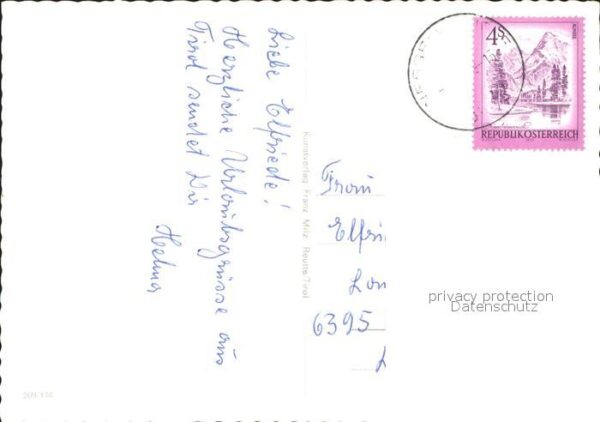 Liebe Elfriede!
Herzliche Urlaubsgrüsse aus
Tirol sendet Dir
Helma
Kunstverlag Franz Milz Reutte Tirol
Frau
Elfri
Lon
6395
4S
REPUBLIK ÖSTERREICH
privacy protection
Datenschutz